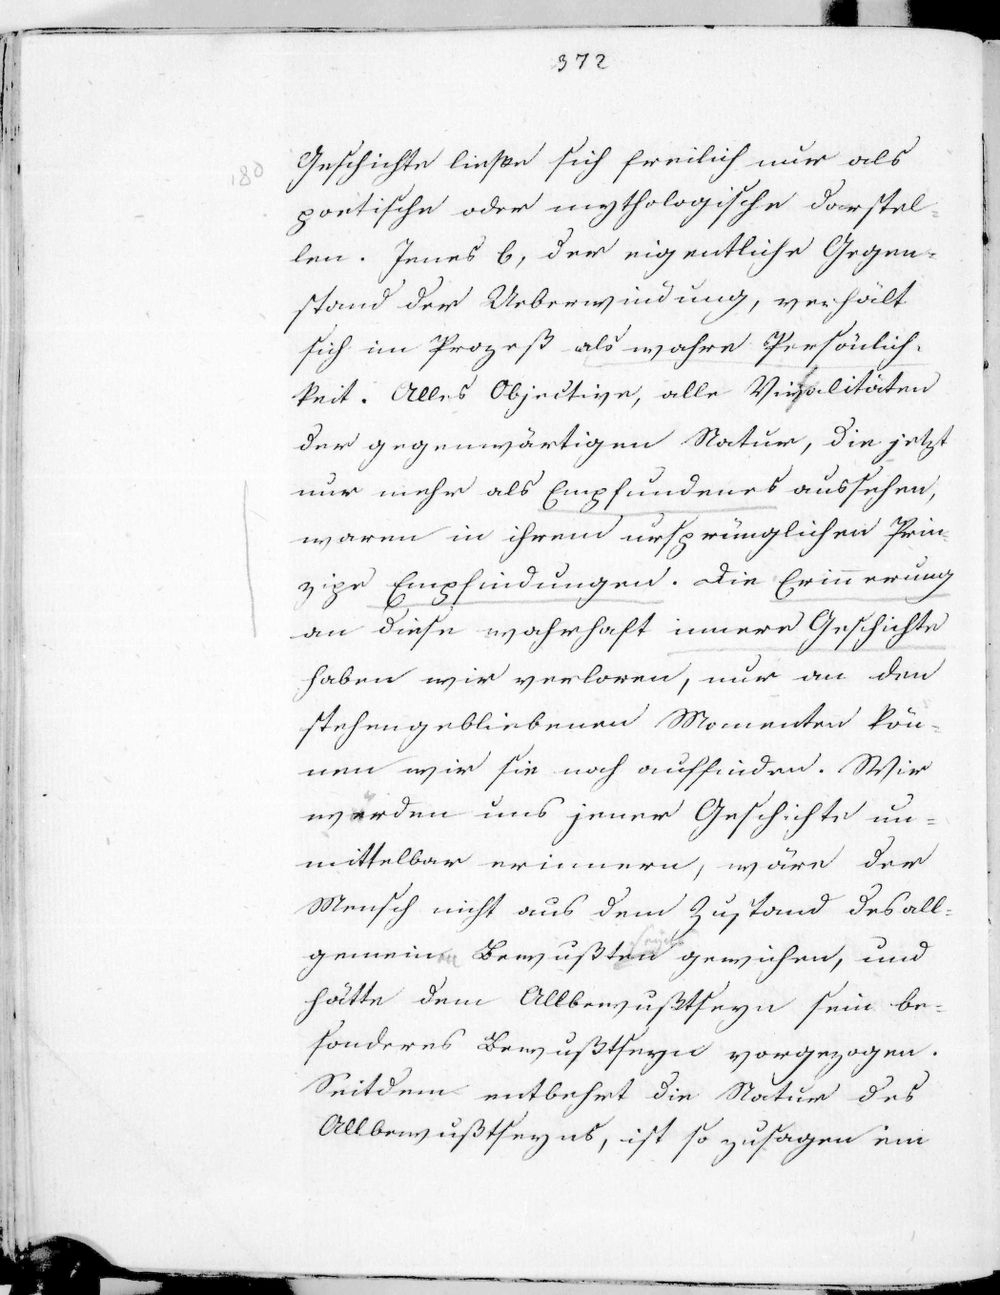 372
180
Geschichte ließe sich freilich nur als
poetische oder mythologische darstel=
len. Jenes b, der eigentliche Gegen=
stand der Ueberwindung, verhält
sich im Prozeß als wahre Persönlich=
keit. Alles Objective, alle Vitalitäten
der gegenwärtigen Natur, die jetzt
nur mehr als Empfundenes aussehen,
waren in ihrem ursprünglichen Prin=
zipe Empfindungen. Die Erinnerung
an diese wahrhaft innere Geschichte
haben wir verloren, nur an den
stehengebliebenen Momenten kön=
nen wir sie noch auffinden. Wir
würden uns jener Geschichte un=
mittelbar erinnern, wäre der
Mensch nicht aus dem Zustand des all=
seyns
gemeinen Bewußten gewichen, und
hätte dem Allbewußtseyn sein be=
sonderes Bewußtseyn vorgezogen.
Seitdem entbehrt die Natur des
Allbewußtseyns, ist so zusagen ein